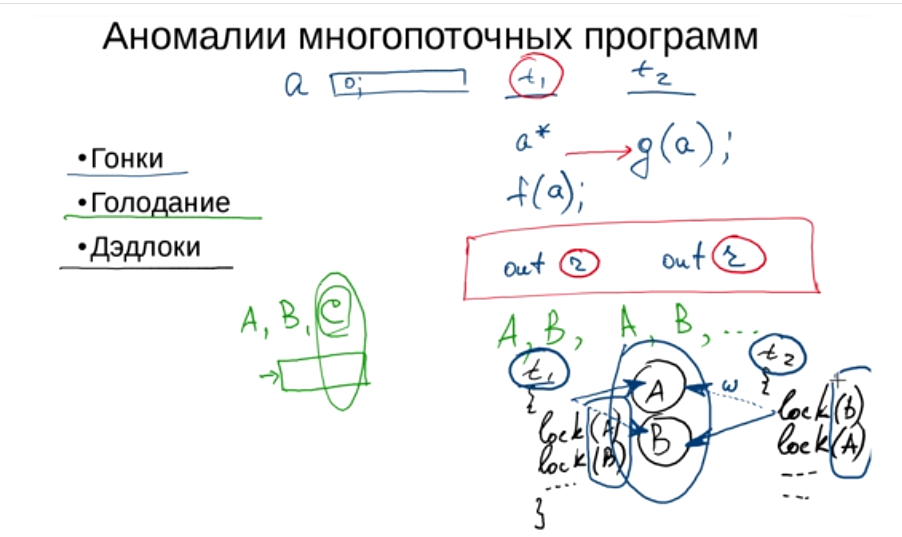 Аномалии многопоточных программ
a 0; t₁ t₂
a* g(a);
f(a);
• Гонки
• Голодание
• Дэдлоки
out r out r
A, B, C
A, B, A, B, ...
t₁ A ω t₂
{ {
lock(A) B lock(B)
lock(B) lock(A)
.... ---
---
}